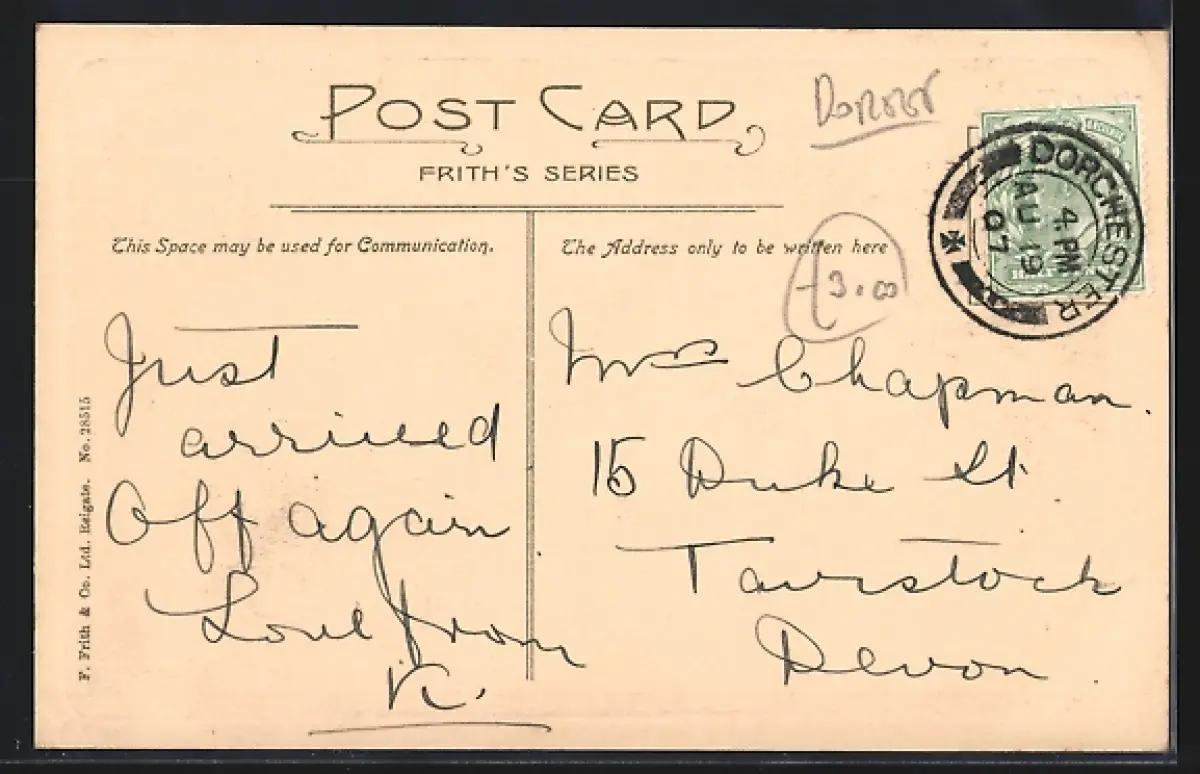 POST CARD
FRITH'S SERIES
This Space may be used for Communication.
The Address only to be written here
DORCHESTER
4. PM
AU 19
07
3.00
Just
arrived
Off again
Love from
K.
Mrs Chapman.
15 Duke St.
Tavistock
Devon.
F. Frith & Co. Ltd. Reigate. No. 28515